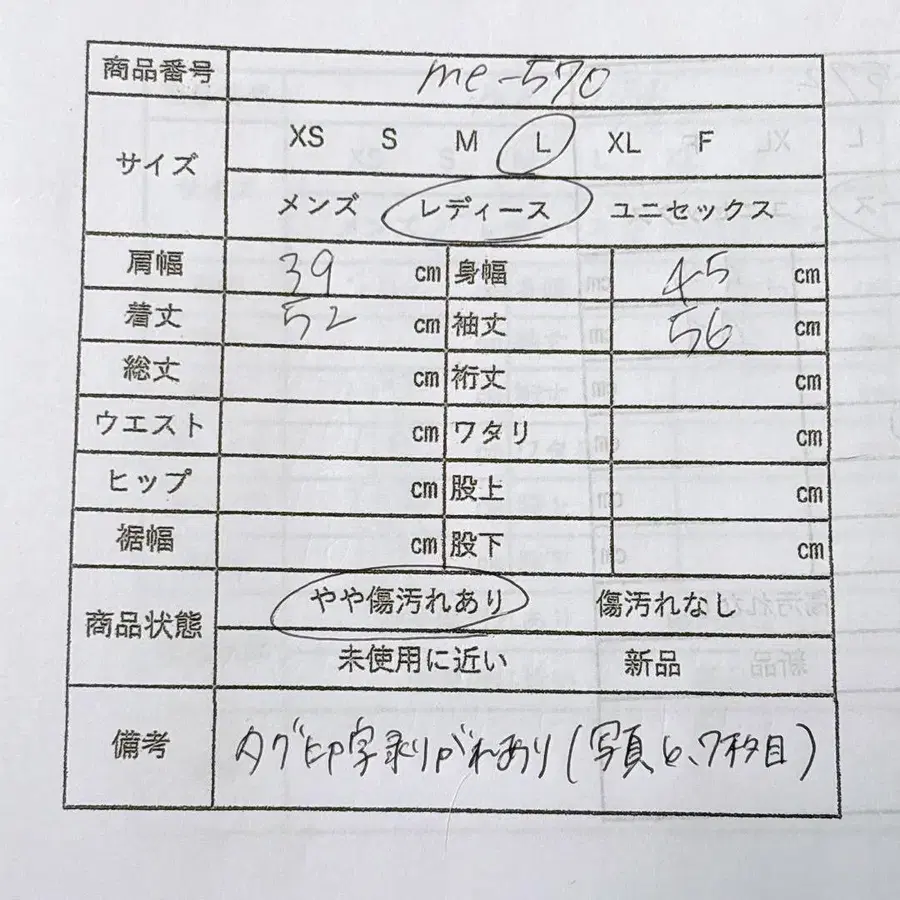 商品番号 me-570
サイズ XS S M L XL F
メンズ レディース ユニセックス
肩幅 39 cm 身幅 45 cm
着丈 52 cm 袖丈 56 cm
総丈 cm 裄丈 cm
ウエスト cm ワタリ cm
ヒップ cm 股上 cm
裾幅 cm 股下 cm
商品状態 やや傷汚れあり 傷汚れなし
未使用に近い 新品
備考 タグ印字剥がれあり(写真6、7枚目)